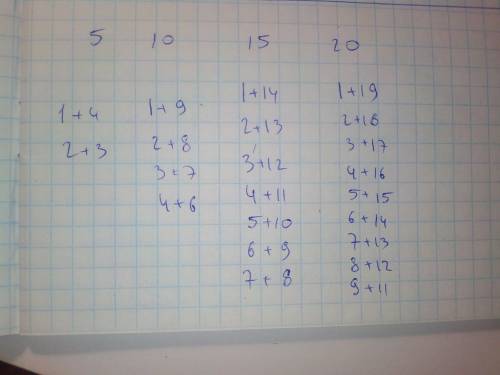 5
1+4
2+3
10
1+9
2+8
3+7
4+6
15
1+14
2+13
3+12
4+11
5+10
6+9
7+8
20
1+19
2+18
3+17
4+16
5+15
6+14
7+13
8+12
9+11